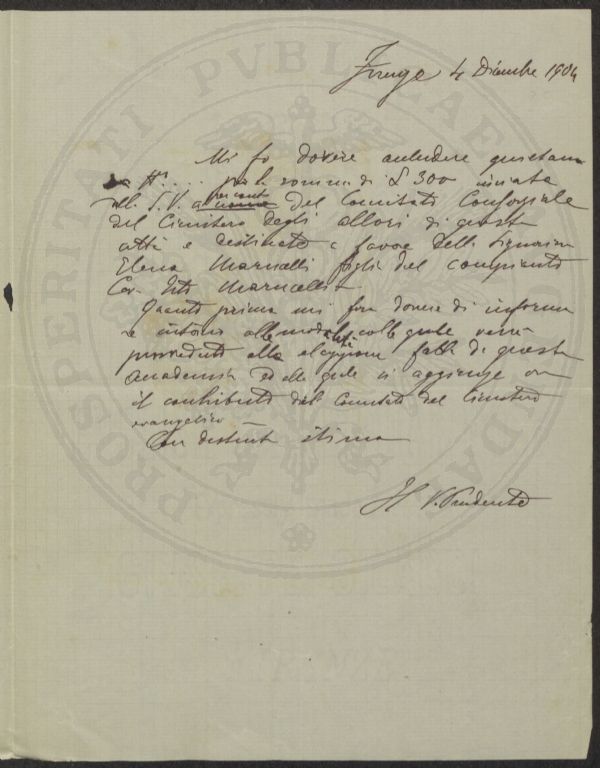 Firenze 4 Dicembre 1904
Mi fo dovere accludere quietanza
N° .... per la somma di £ 300 inviate
alla S.V. a nome per conto del Comitato Consorziale
del Cimitero degli Allori di questa
città e destinate a favore della Signorina
Elena Marucelli figlia del compianto
Cav. Marucelli
Quanto prima mi farò dovere di informar
e intorno alle modalità colle quali verrà
provveduto alla elargizione fatta da questa
Accademia ed alla quale si aggiunge ora
il contributo del Comitato del Cimitero
evangelico
Con distinta stima
Il V. Presidente
PROSPERITATI PVBLICAE AVGENDAE